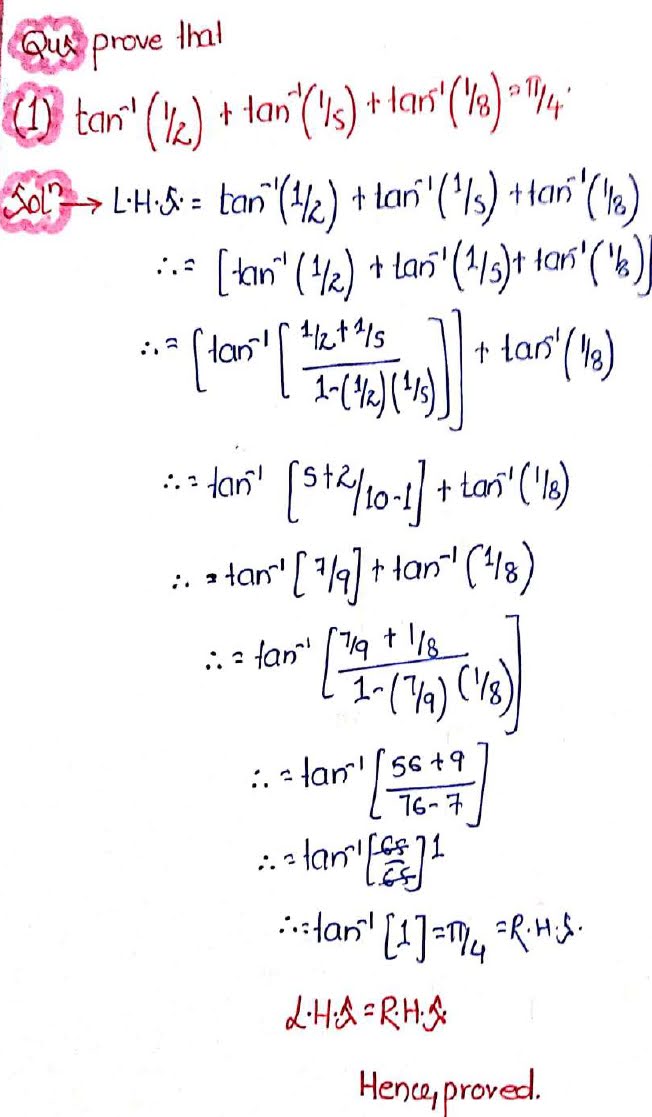 Qus prove that
(1) tan⁻¹(1/2) + tan⁻¹(1/5) + tan⁻¹(1/8) = π/4.
Solⁿ → L.H.S. = tan⁻¹(1/2) + tan⁻¹(1/5) + tan⁻¹(1/8)
∴ = [tan⁻¹(1/2) + tan⁻¹(1/5) + tan⁻¹(1/8)]
∴ = [tan⁻¹[1/2 + 1/5 / 1-(1/2)(1/5)]] + tan⁻¹(1/8)
∴ = tan⁻¹ [5+2/10-1] + tan⁻¹(1/8)
∴ = tan⁻¹[7/9] + tan⁻¹(1/8)
∴ = tan⁻¹ [7/9 + 1/8 / 1-(7/9)(1/8)]
∴ = tan⁻¹ [56+9 / 76-7]
∴ = tan⁻¹[65/65] 1
∴ = tan⁻¹ [1] = π/4 = R.H.S.
L.H.S = R.H.S.
Hence, proved.